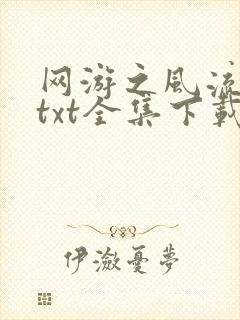 网游之风流
txt全集下载
伊潋憂夢